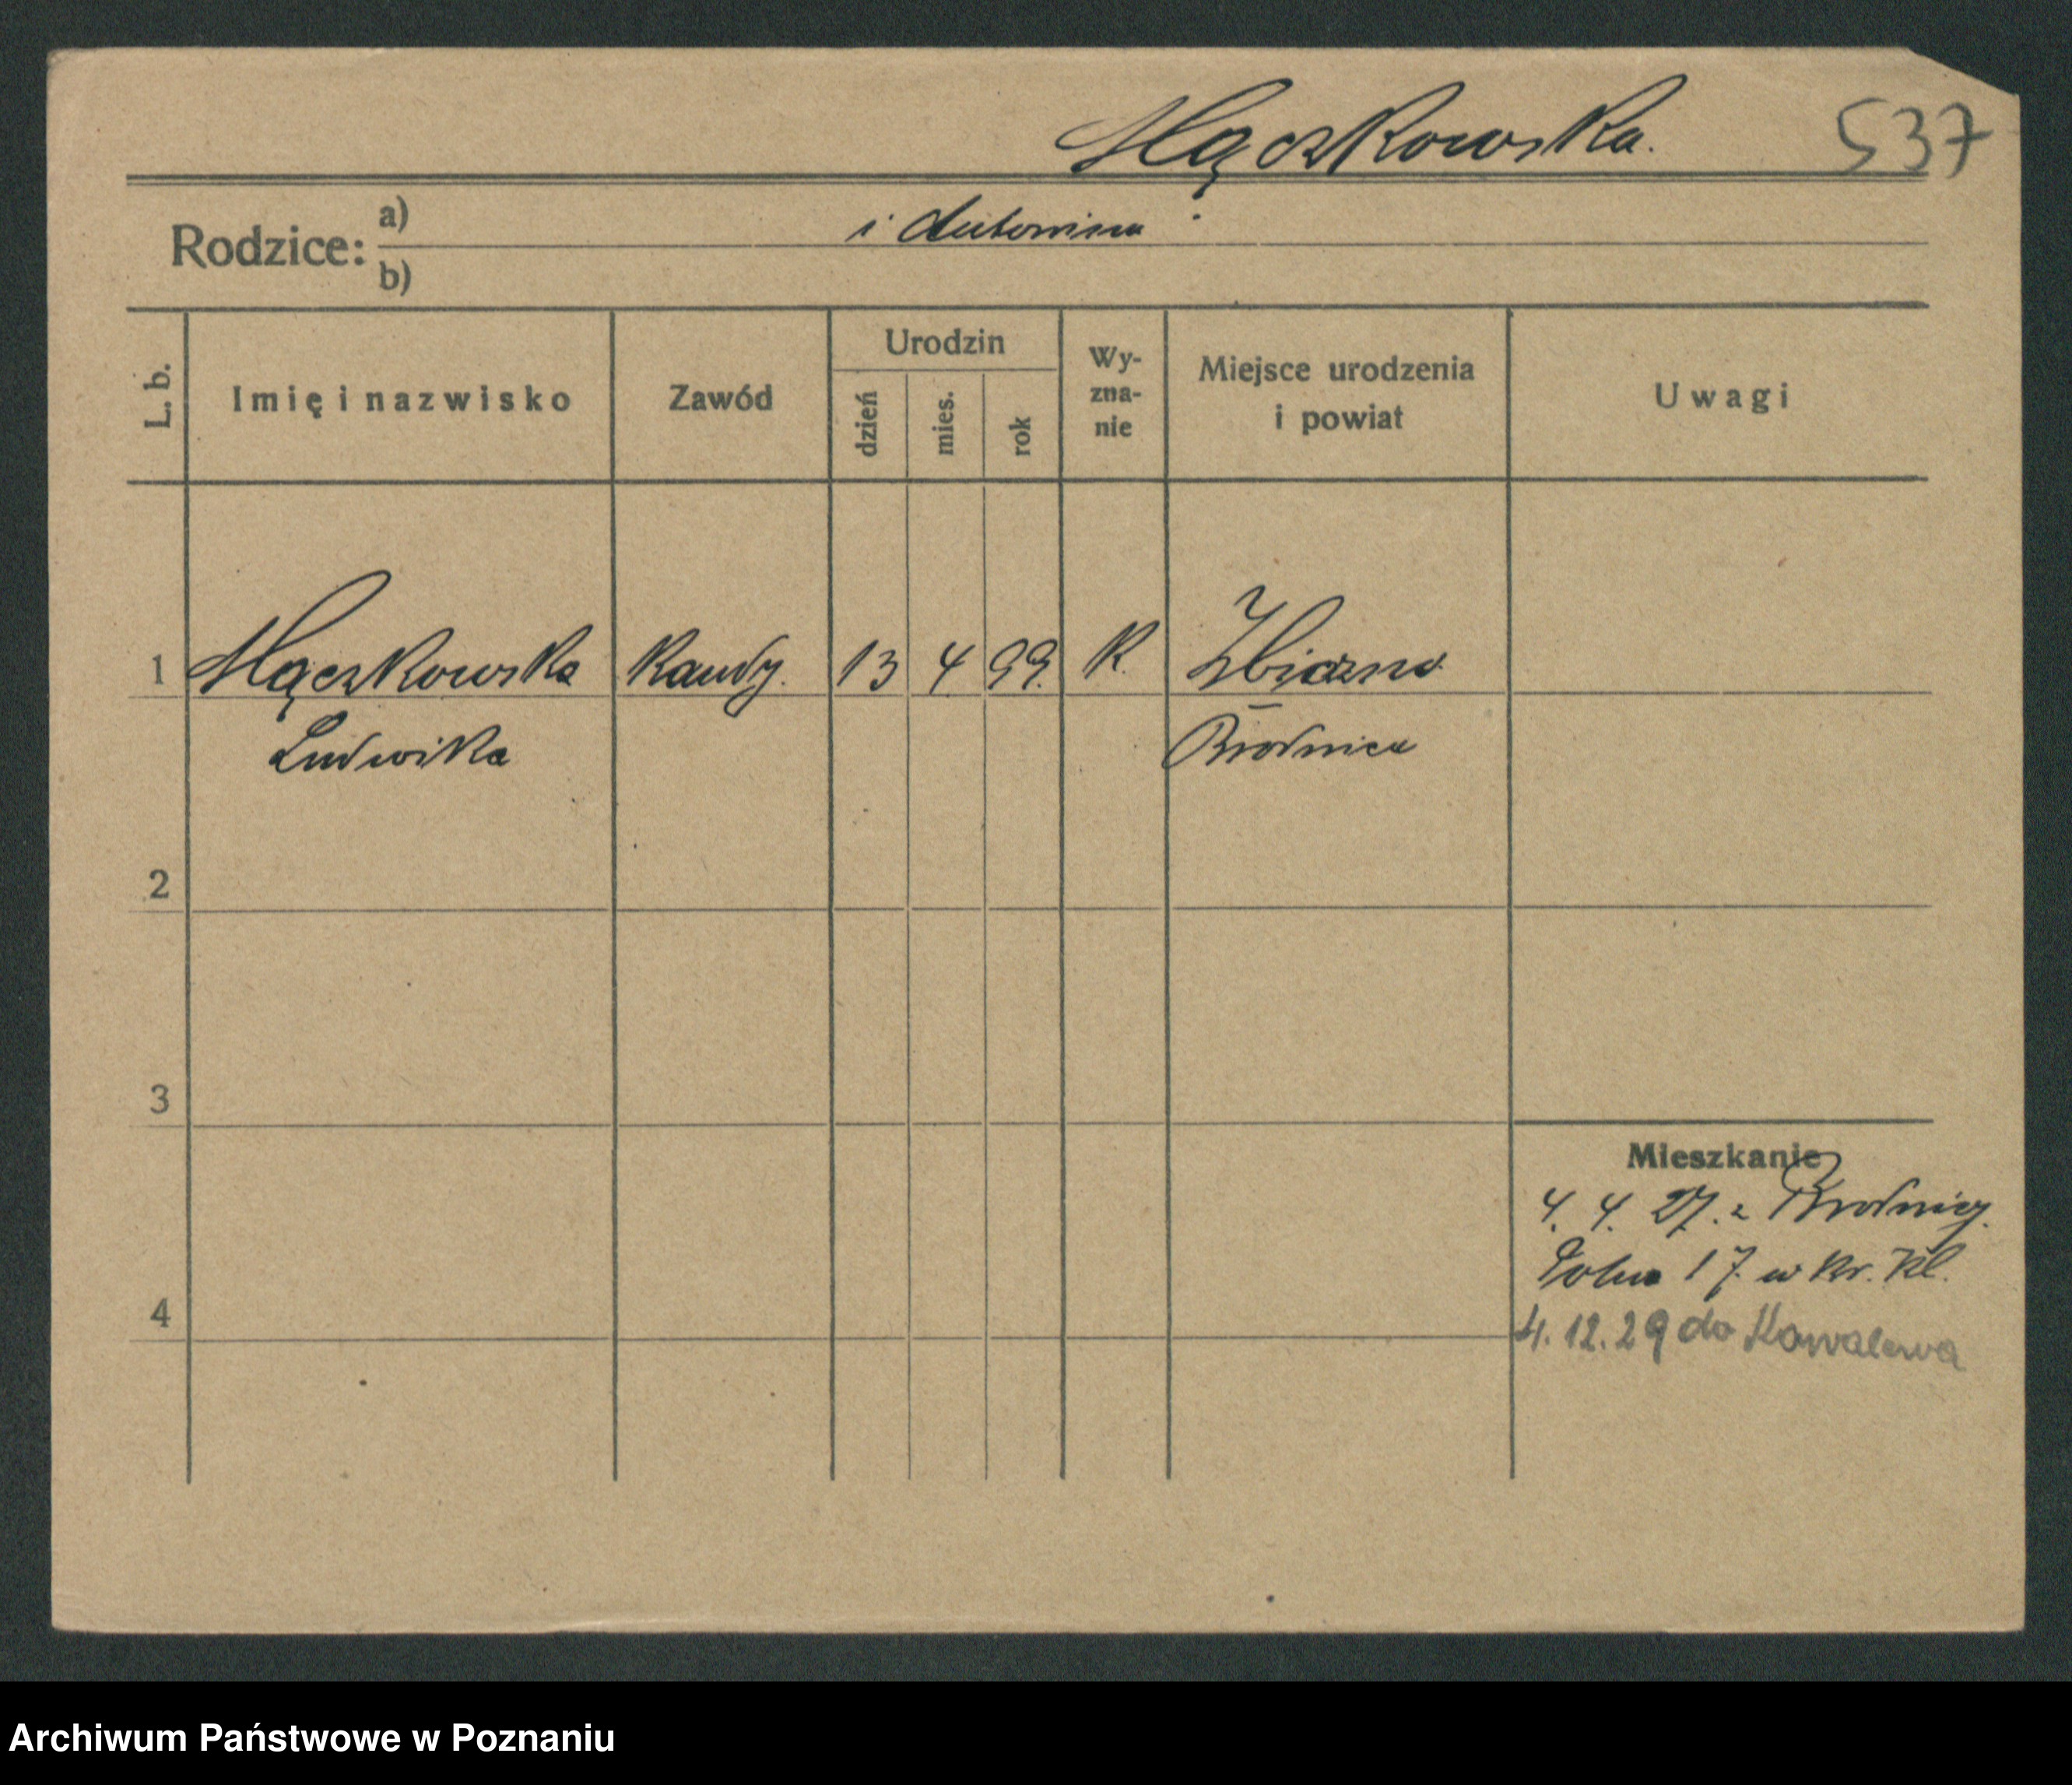 Mączkowska. 537
Rodzice: a) i Antonina
b)
L. b. Imię i nazwisko Zawód Urodzin dzień mies. rok Wy-zna-nie Miejsce urodzenia i powiat Uwagi
1 Mączkowska 13 4 99. K. Zbiczno
Ludwika Brodnica
2
3
Mieszkanie
4. 4. 27. z Brodnicy.
17. w kr. Kl.
4 4.12.29 do Kowalewa
Archiwum Państwowe w Poznaniu